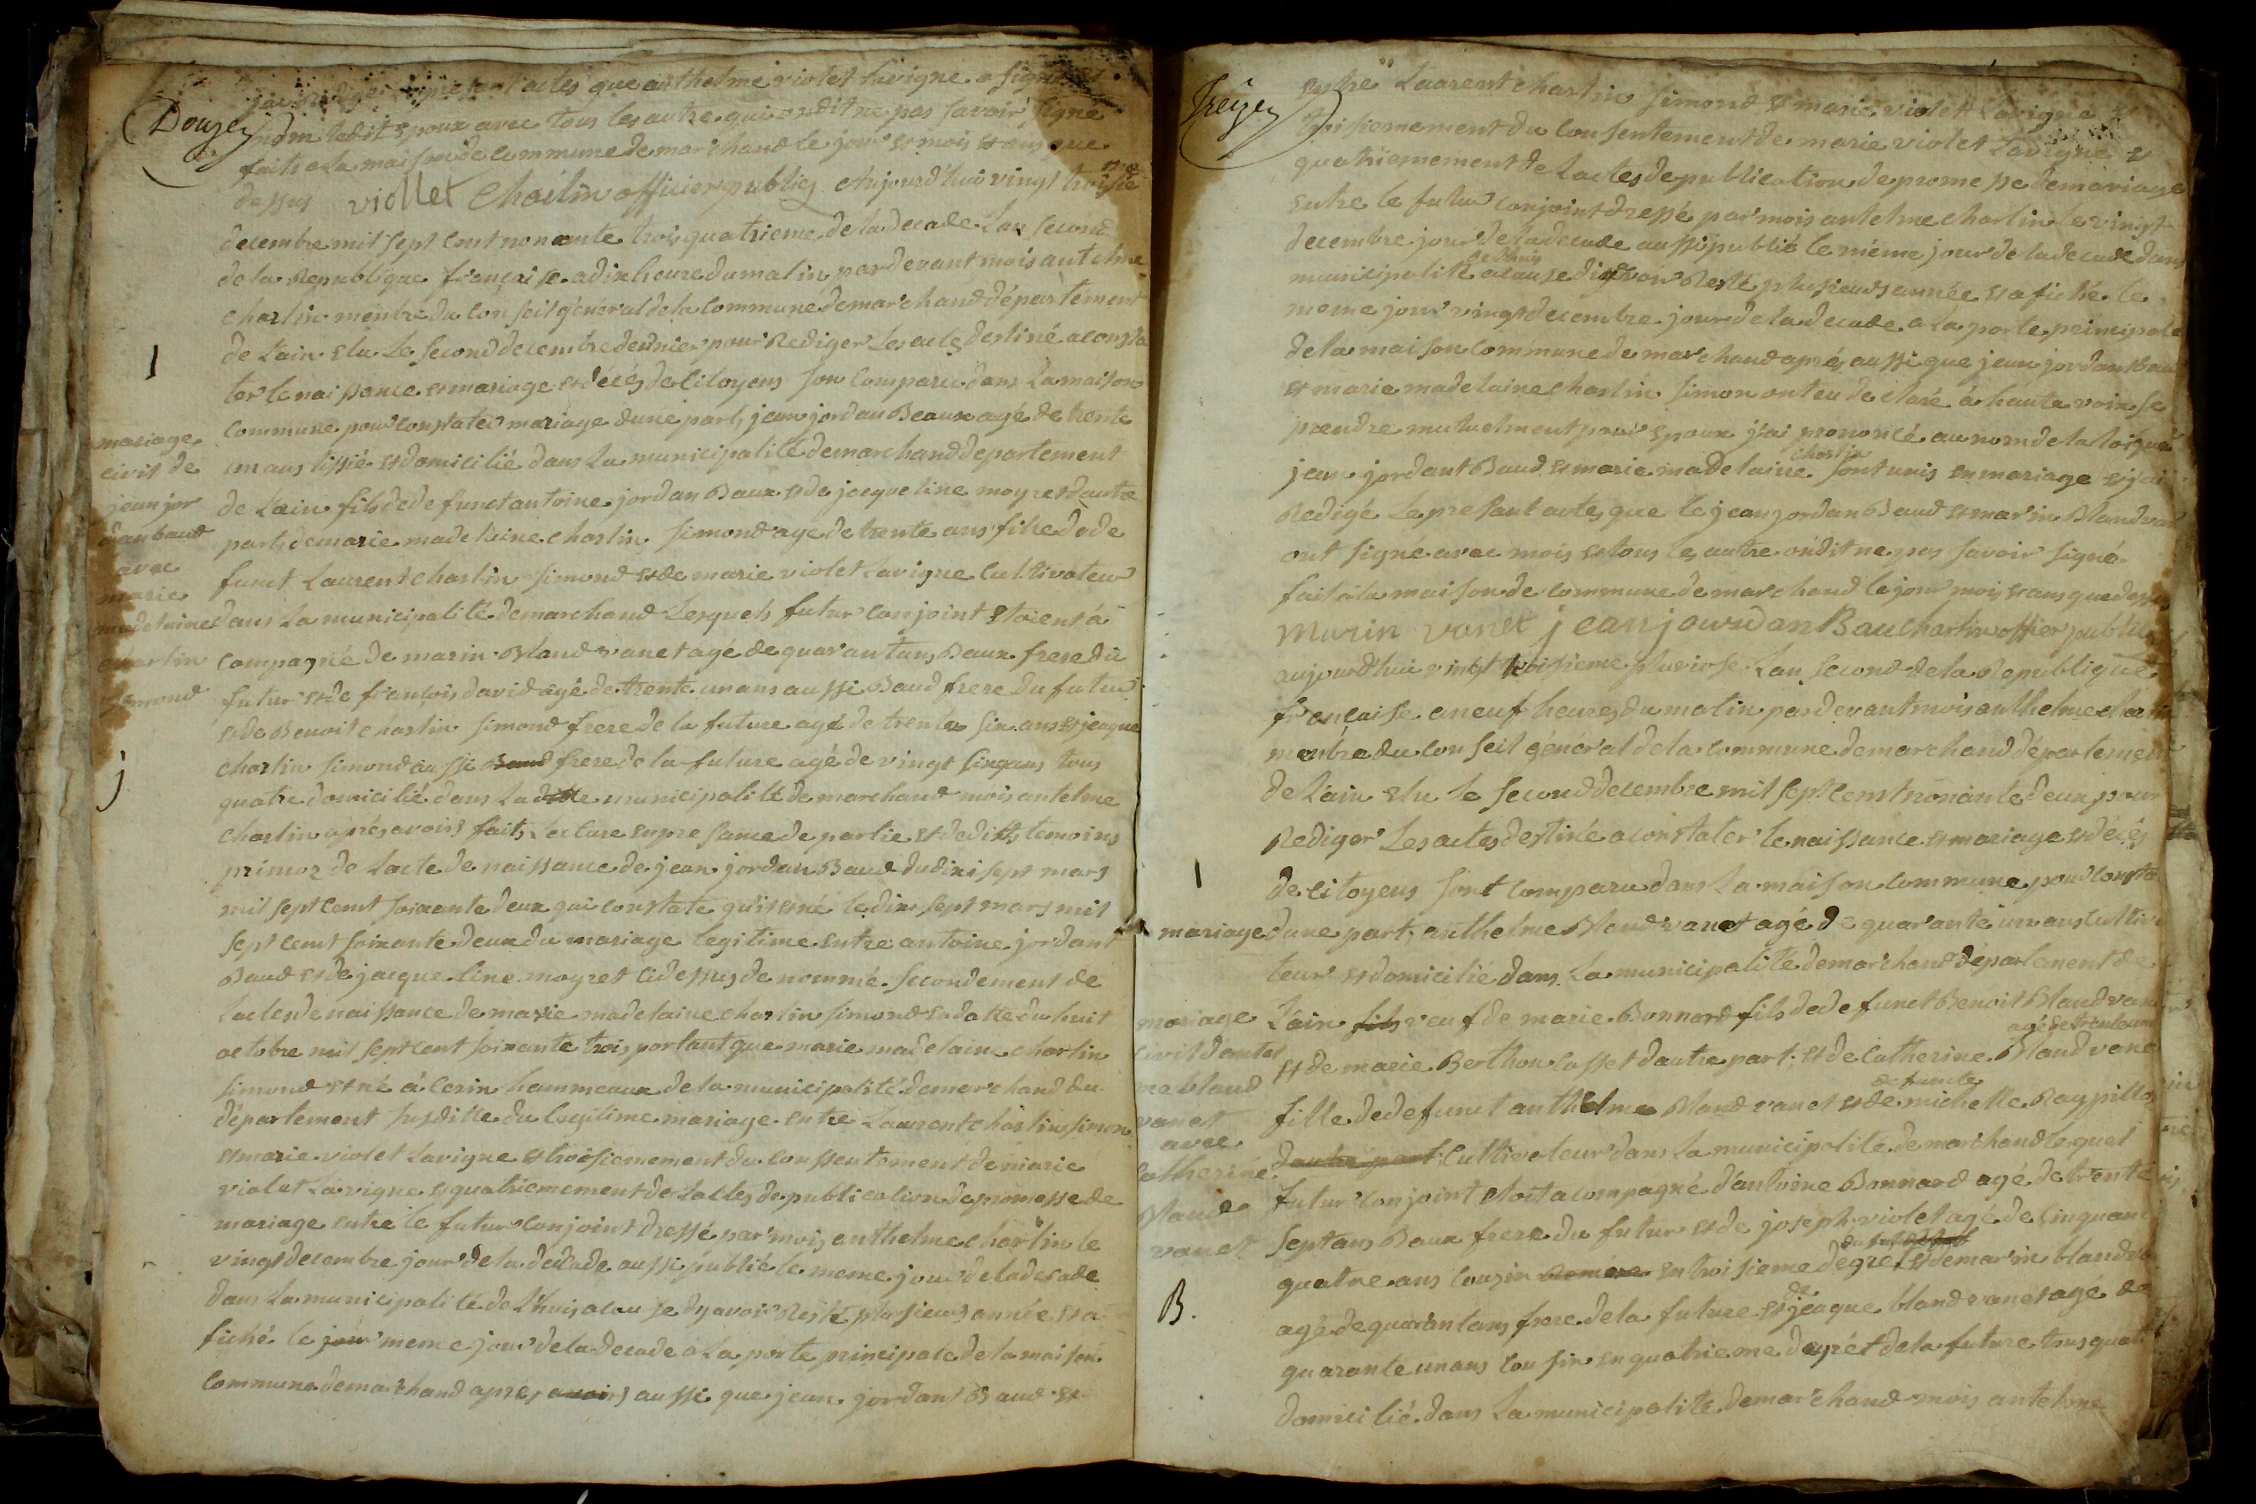 Douzez
acte que anthelme violet Lavigne a signé
ledit Epoux avec tous les autre qui on dit ne pas savoir signe
faits a La maison de commune de marchand le jour et mois et ans que
dessus viollet Charlin officier public Aujourd'hui vingt troisie
decembre mil sept cent nonante trois quatrieme de la decade Lan second
de la Republique françaisse a dix heure du matin pardevant mois antelme
charlin menbre du conseil général de la commune de marchand département
de Lain elu Le second decembre dernier pour Rediger Les acte destiné a consta
ter le naissance et mariage et décés de citoyens son comparu dans La maison
commune pour constater mariage dune part, jean jordan Beaux agé de trente
un ans et domicilié dans La municipalité de marchand departement
de Lain fils de defunct antoine jordan Baux et de jacqueline moyret dautre
part, de marie madelaine charlin simond agé de trente ans fille de de
funct Laurent charlin simond et de marie violet Lavigne Cultivateur
dans La municipalité de marchand Lesquels futur conjoint Etoient a
compagné de marin Bland vanet agé de quarantans Beaux frere du
futur et de francois david agé de trente un ans aussi Baud frere du futur
et de Benoit charlin simond frere de la future agé de trente six ans et jacque
charlin simond aussi Baud frere de la future agé de vingt cinq ans tous
quatre domicilié dans Ladite municipalité de marchand mois antelme
charlin aprés avoirs faits Lecture en presance de partie et dedits temoins
primoz de Lacte de naissance de jean jordan Baud du dixi sept mars
mil sept cent soixante deux qui constate quil est né le dix sept mars mil
sept cent soixante deux du mariage legitime entre antoine jordant
Baud et de jacque line moyret cidessus de nommé. secondement de
Lactes de naissance de marie madelaine charlin simond en datte du huit
octobre mil sept cent soixante trois portant que marie madelaine charlin
simond et né à Cerin hammeaux de la municipalité de marchand du
département susditte du legitime mariage entre Laurent charlin simon
et marie violet Lavigne et troisiemement du conssentement de marie
violet Lavigne et quatriemement de Lactes de publication de promesse de
mariage entre le futur conjoint dressé par mois anthelme charlin le
vingt decembre jour de la decade aussi publié le meme jour de la decade
dans La municipalité de Lhuis a cause dy avoir Resté plusieurs année et a
fiché le jour meme jour de la decade a La porte principale de la maison
commune de marchand apres avoirs aussi que jean jordant Baud et
mariage
civil de
jean jor
dan baud
avec
marie
madelaine
charlin
simond
Treizez
entre Laurent charlin simond et marie violet Lavigne
troisiemement du consentement de marie violet Lavigne et
quatriemement de Lactes de publication de promesse de mariage
entre le futur conjoint dressé par mois antelme charlin le vingt
decembre jour de la decade aussi publié le même jour de la decade dans
municipalité de Lhuis a cause dy avoir Resté plusieurs année et afiché le
meme jour vingt decembre jour de la decade a La porte principale
de la maison commune de marchand aprés aussi que jean jordan Baud
et marie madelaine charlin simon ont eu declaré à haute voix se
prendre mutuelment pour Epoux jai prononcé au nom de la loi que
jean jordant Baud et marie madelaine charlin sont unis en mariage et jai
Redigé Le presant actes que le jean jordan Baud et marin Bland van
ont signé avec mois et tous les autre on dit ne pas savoir signé
fait à la maison de commune de marchand le jour mois et ans que dessus
Marin vanet jean jourdan Bau Charlin officier public
aujourdhui vingt troisieme pluviose Lan second de la Republique
française a neuf heures du matin pardevant mois anthelme charlin
membre du conseil général de la commune de marchand départemen
de Lain elu le second decembre mil sept cent nonante deux pour
Rediger Les actes destiné a constater le naissance et mariage et décés
de citoyens sont comparu dans La maison commune pour consta
mariage dune part, anthelme Bland vanet agé de quarante un ans cultiva
teur et domicilié dans La municipalité de marchand département de
Lain fils veuf de marie Bonnard fils de defunct Benoit Bland van
et de marie Berthou Casset dautre part, et de Catherine Bland vane agé de trente ans
fille de defunct anthelme Bland vanet et de defuncte michelle Raypillo
dautre part Cultivateur dans La municipalité de marchand lequel
futur conjoint Etoit acompagné dantoine Bonnard agé de trente
sept ans Baux frere du futur et de joseph violet agé de cinquante
quatre ans cousin en troisieme degré et de marin bland
agé de quarantans frere de la future et de jacque bland vanet agé de
quarante un ans cousin en quatrieme degrét de la future tous quatr
domicilié dans La municipalité de marchand mois antelme
mariage
civil dantel
me bland
vanet
avec
Catherine
Bland
vanet
B.